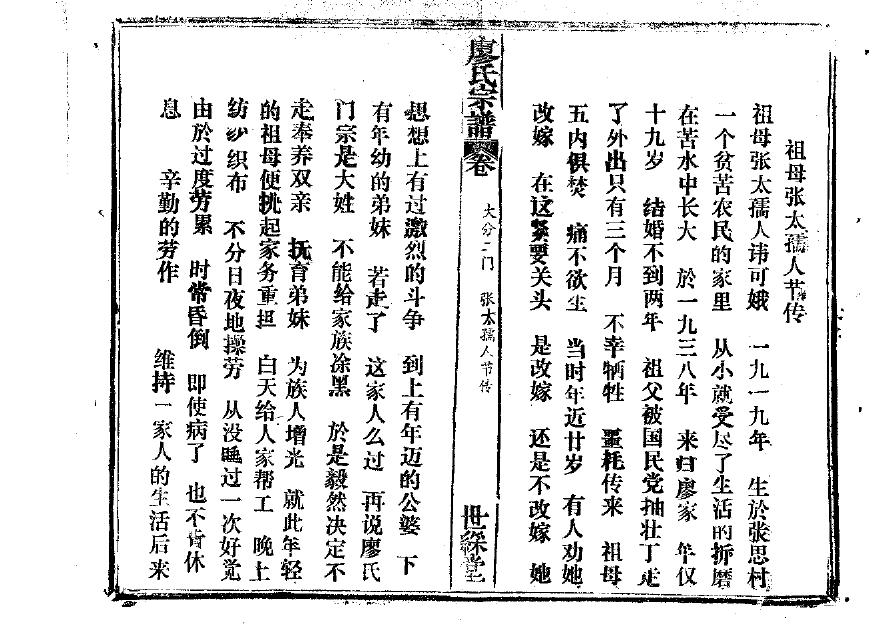 祖母张太孺人节传
祖母张太孺人讳可娥　一九一九年　生於张思村
一个贫苦农民的家里　从小就受尽了生活的折磨
在苦水中长大　於一九三八年　来归廖家　年仅
十九岁　结婚不到两年　祖父被国民党抽壮丁走
了外出只有三个月　不幸牺牲　噩耗传来　祖母
五内俱焚　痛不欲生　当时年近廿岁　有人劝她
改嫁　在这紧要关头　是改嫁　还是不改嫁　她
廖氏宗谱　卷
大分二门　张太孺人节传
世綵堂
思想上有过激烈的斗争　到上有年迈的公婆　下
有年幼的弟妹　若走了　这家人么过　再说廖氏
门宗是大姓　不能给家族凃黑　於是毅然决定不
走奉养双亲　抚育弟妹　为族人增光　就此年轻
的祖母便挑起家务重担　白天给人家帮工　晚上
纺纱织布　不分日夜地操劳　从没睡过一次好觉
由於过度劳累　时常昏倒　即使病了　也不肯休
息　辛勤的劳作　维持一家人的生活后来